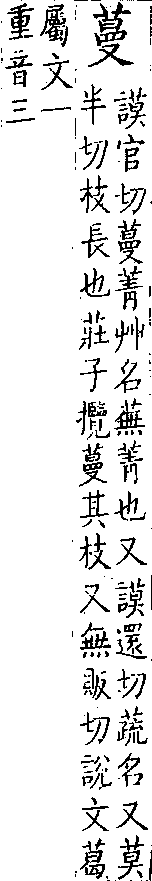 蔓
謨官切蔓菁艸名蕪菁也又謨還切蔬名又莫
半切枝長也莊子攬蔓其枝又無販切說文葛
屬文一
重音三